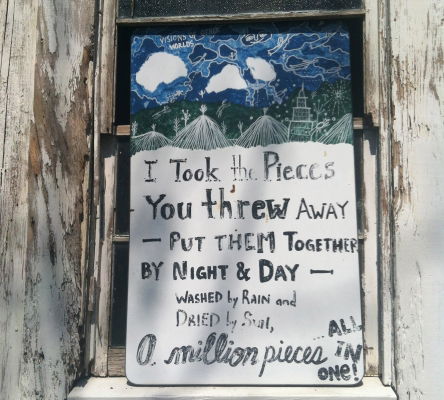 VISIONS OF
WORLDS
I Took the Pieces
You threw AWAY
— PUT THEM TOGETHER
BY NIGHT & DAY —
WASHED by RAIN and
DRIED by SUN,
A million pieces
...ALL
IN
ONE!